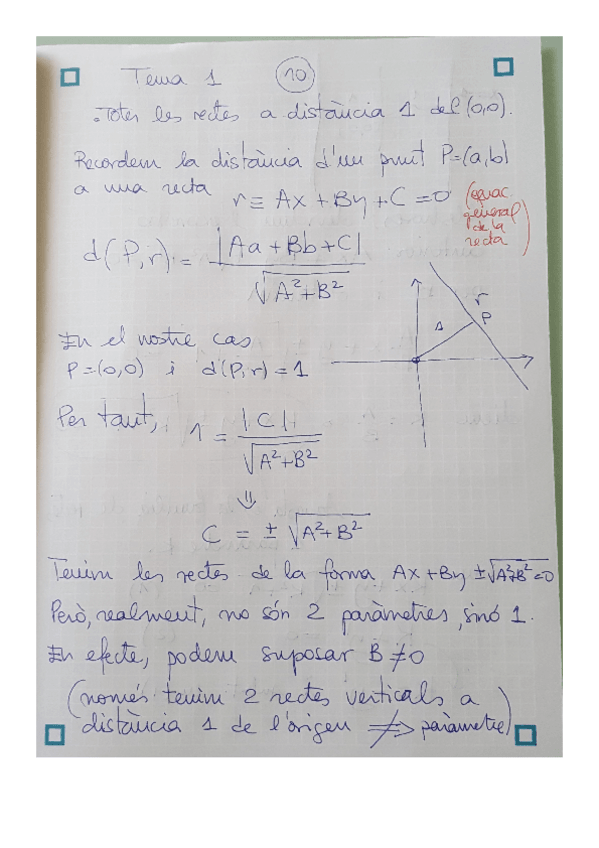 Tema 1 10
. Totes les rectes a distància 1 del (0,0).
Recordem la distància d'un punt P=(a,b)
a una recta r≡ Ax + By + C = 0 (equac. general de la recta
d(P,r) = |Aa + Bb + C| / √A²+B²
r
P
1
En el nostre cas
P=(0,0) i d(P,r) = 1
Per tant, 1 = |C| / √A²+B²
⇓
C = ± √A²+B²
Tenim les rectes de la forma Ax+By ±√A²+B²=0
Però, realment, no són 2 paràmetres, sinó 1.
En efecte, podem suposar B≠0
(només tenim 2 rectes verticals a
distància 1 de l'origen ⇏ paràmetre)